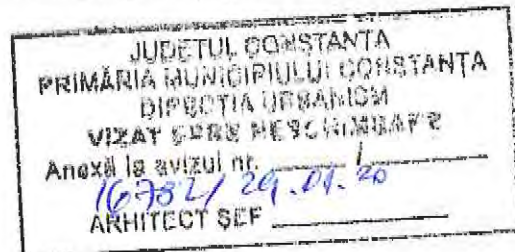 JUDEŢUL CONSTANŢA
PRIMĂRIA MUNICIPIULUI CONSTANŢA
DIRECŢIA URBANISM
VIZAT SPRE NESCHIMBARE
Anexă la avizul nr. /
ARHITECT ŞEF